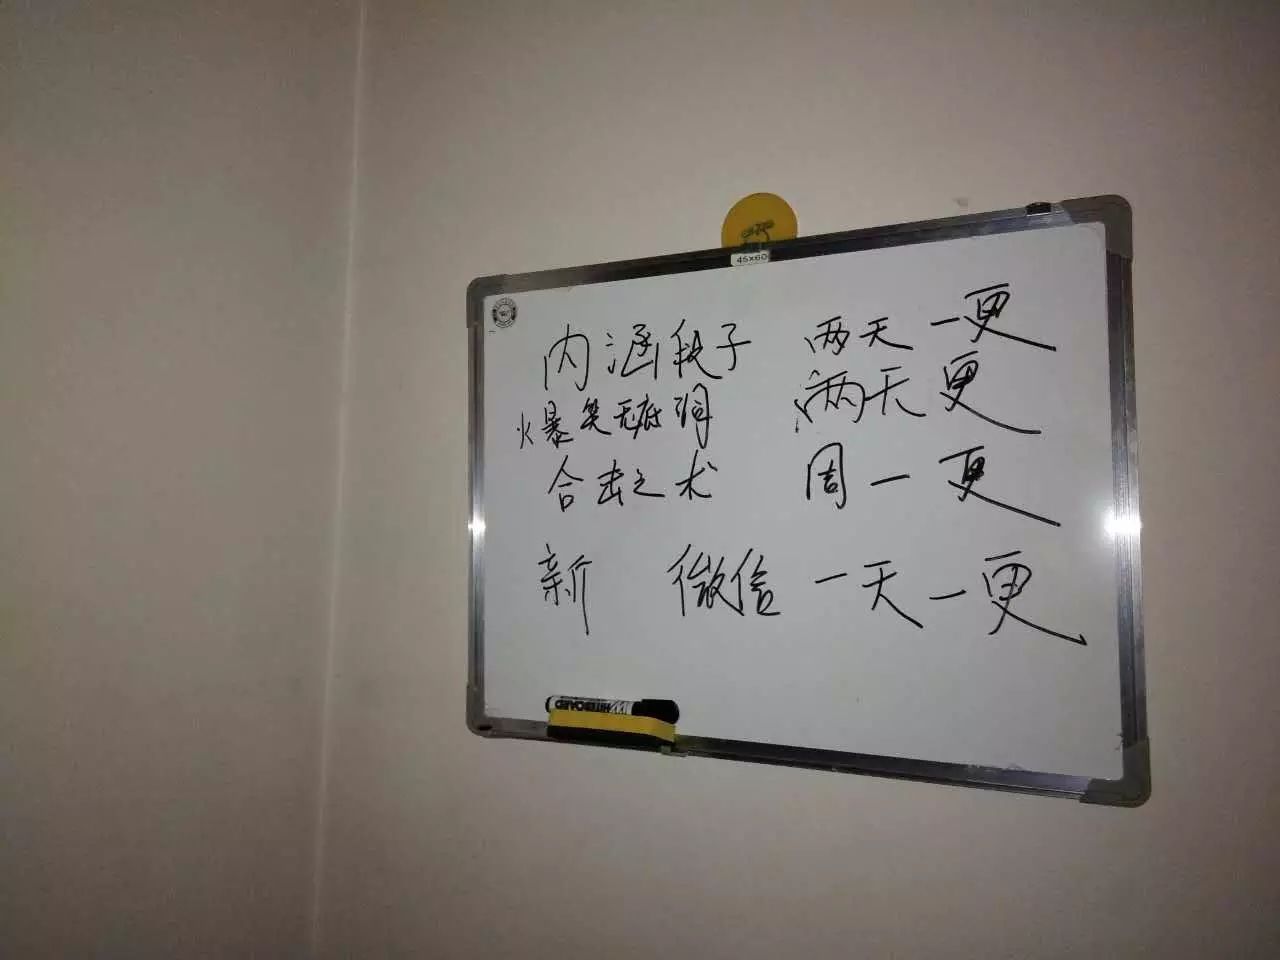 45×60
内涵段子 两天一更
火爆笑无底洞 两天更
合击之术 周一更
新 微信 一天一更
WHITEBOARD